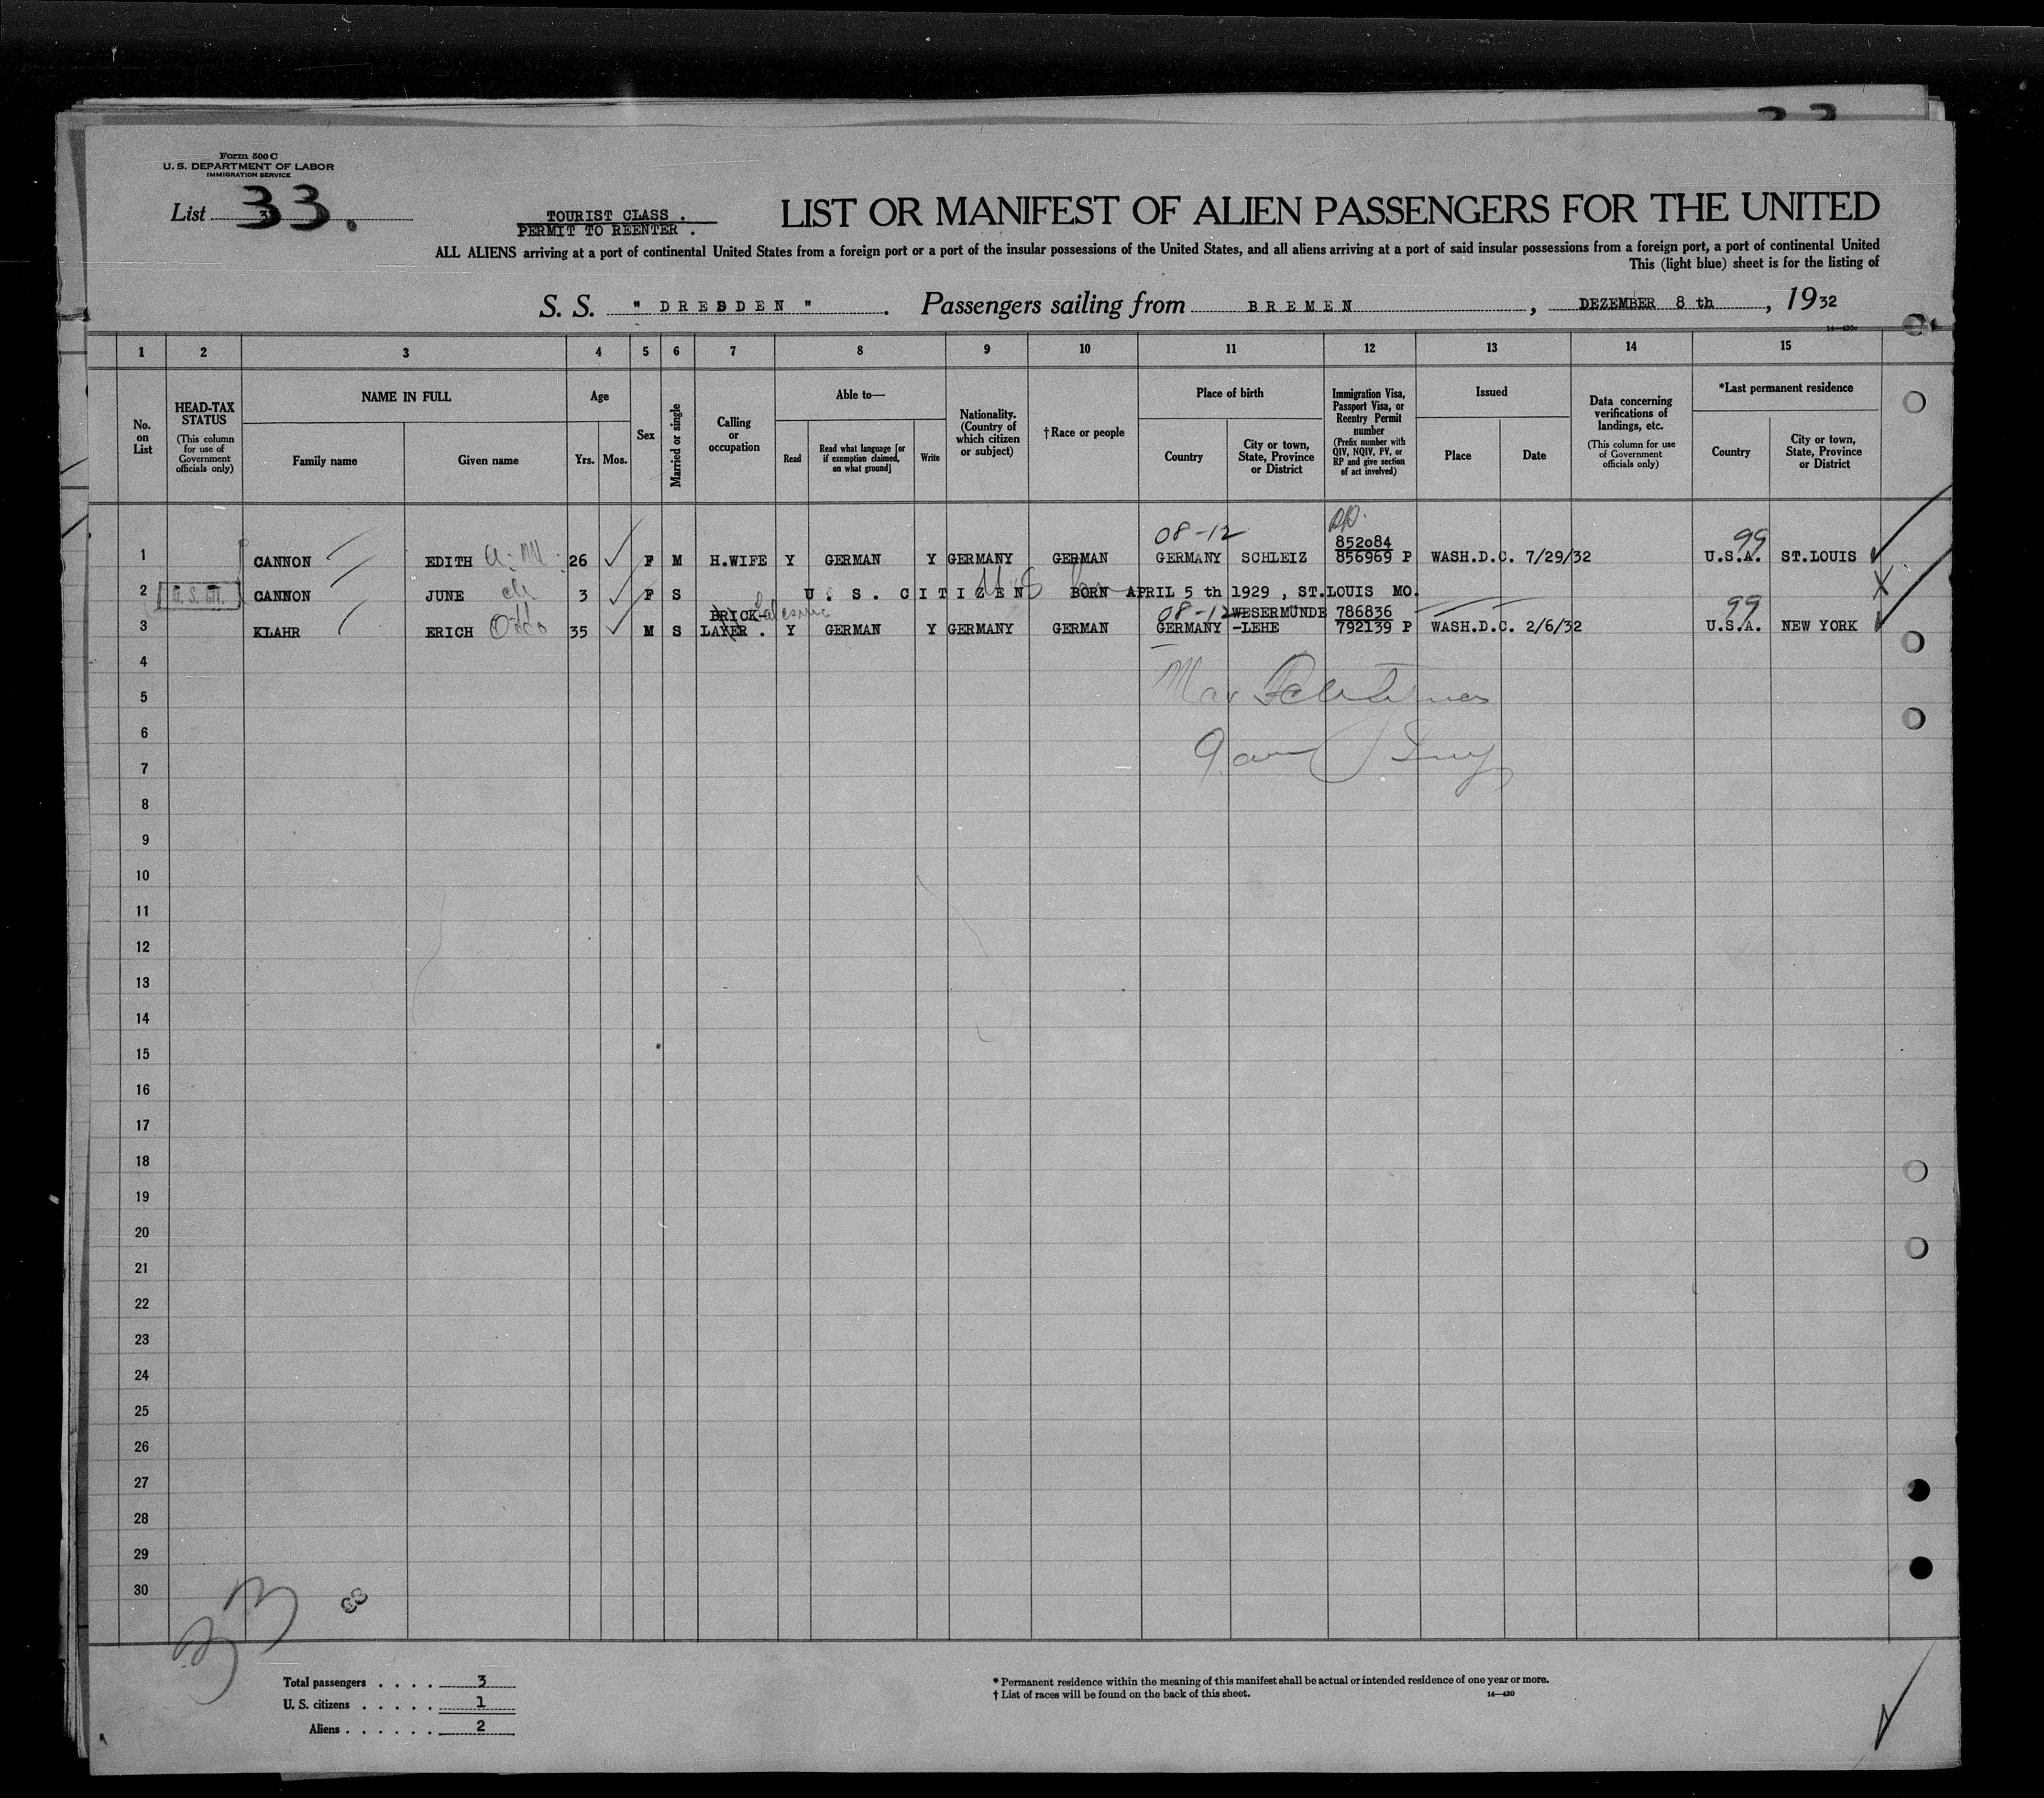 Form 500 C
U. S. DEPARTMENT OF LABOR
IMMIGRATION SERVICE
List 33.
TOURIST CLASS .
PERMIT TO REENTER .
LIST OR MANIFEST OF ALIEN PASSENGERS FOR THE UNITED
ALL ALIENS arriving at a port of continental United States from a foreign port or a port of the insular possessions of the United States, and all aliens arriving at a port of said insular possessions from a foreign port, a port of continental United
This (light blue) sheet is for the listing of
S. S. " DRESDEN " . Passengers sailing from BREMEN , DEZEMBER 8 th , 19 32
1 2 3 4 5 6 7 8 9 10 11 12 13 14 15
No. on List
HEAD-TAX STATUS
(This column for use of Government officials only)
NAME IN FULL
Family name
Given name
Age
Yrs. Mos.
Sex
Married or single
Calling or occupation
Able to—
Read
Read what language [or if exemption claimed, on what ground]
Write
Nationality. (Country of which citizen or subject)
† Race or people
Place of birth
Country
City or town, State, Province or District
Immigration Visa, Passport Visa, or Reentry Permit number
(Prefix number with QIV, NQIV, PV, or RP and give section of act involved)
Issued
Place
Date
Data concerning verifications of landings, etc.
(This column for use of Government officials only)
*Last permanent residence
Country
City or town, State, Province or District
08-12 852084 99
1 CANNON EDITH A. M. 26 F M H.WIFE Y GERMAN Y GERMANY GERMAN GERMANY SCHLEIZ 856969 P WASH.D.C. 7/29/32 U.S.A. ST.LOUIS
2 CANNON JUNE 3 F S U. S. CITIZEN BORN APRIL 5 th 1929 , ST.LOUIS MO.
BRICK- 08-12 WESERMÜNDE 786836 99
3 KLAHR ERICH Otto 35 M S LAYER . Y GERMAN Y GERMANY GERMAN GERMANY -LEHE 792139 P WASH.D.C. 2/6/32 U.S.A. NEW YORK
4
5
6
7
8
9
10
11
12
13
14
15
16
17
18
19
20
21
22
23
24
25
26
27
28
29
30
33
33
Total passengers . . . . 3
U. S. citizens . . . . . 1
Aliens . . . . . . 2
* Permanent residence within the meaning of this manifest shall be actual or intended residence of one year or more.
† List of races will be found on the back of this sheet.
14—430